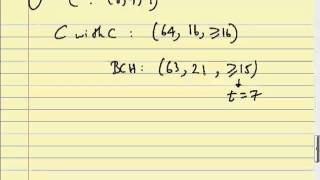 C with C : (64, 16, ≥16)
BCH : (63, 21, ≥15)
↓
t=7